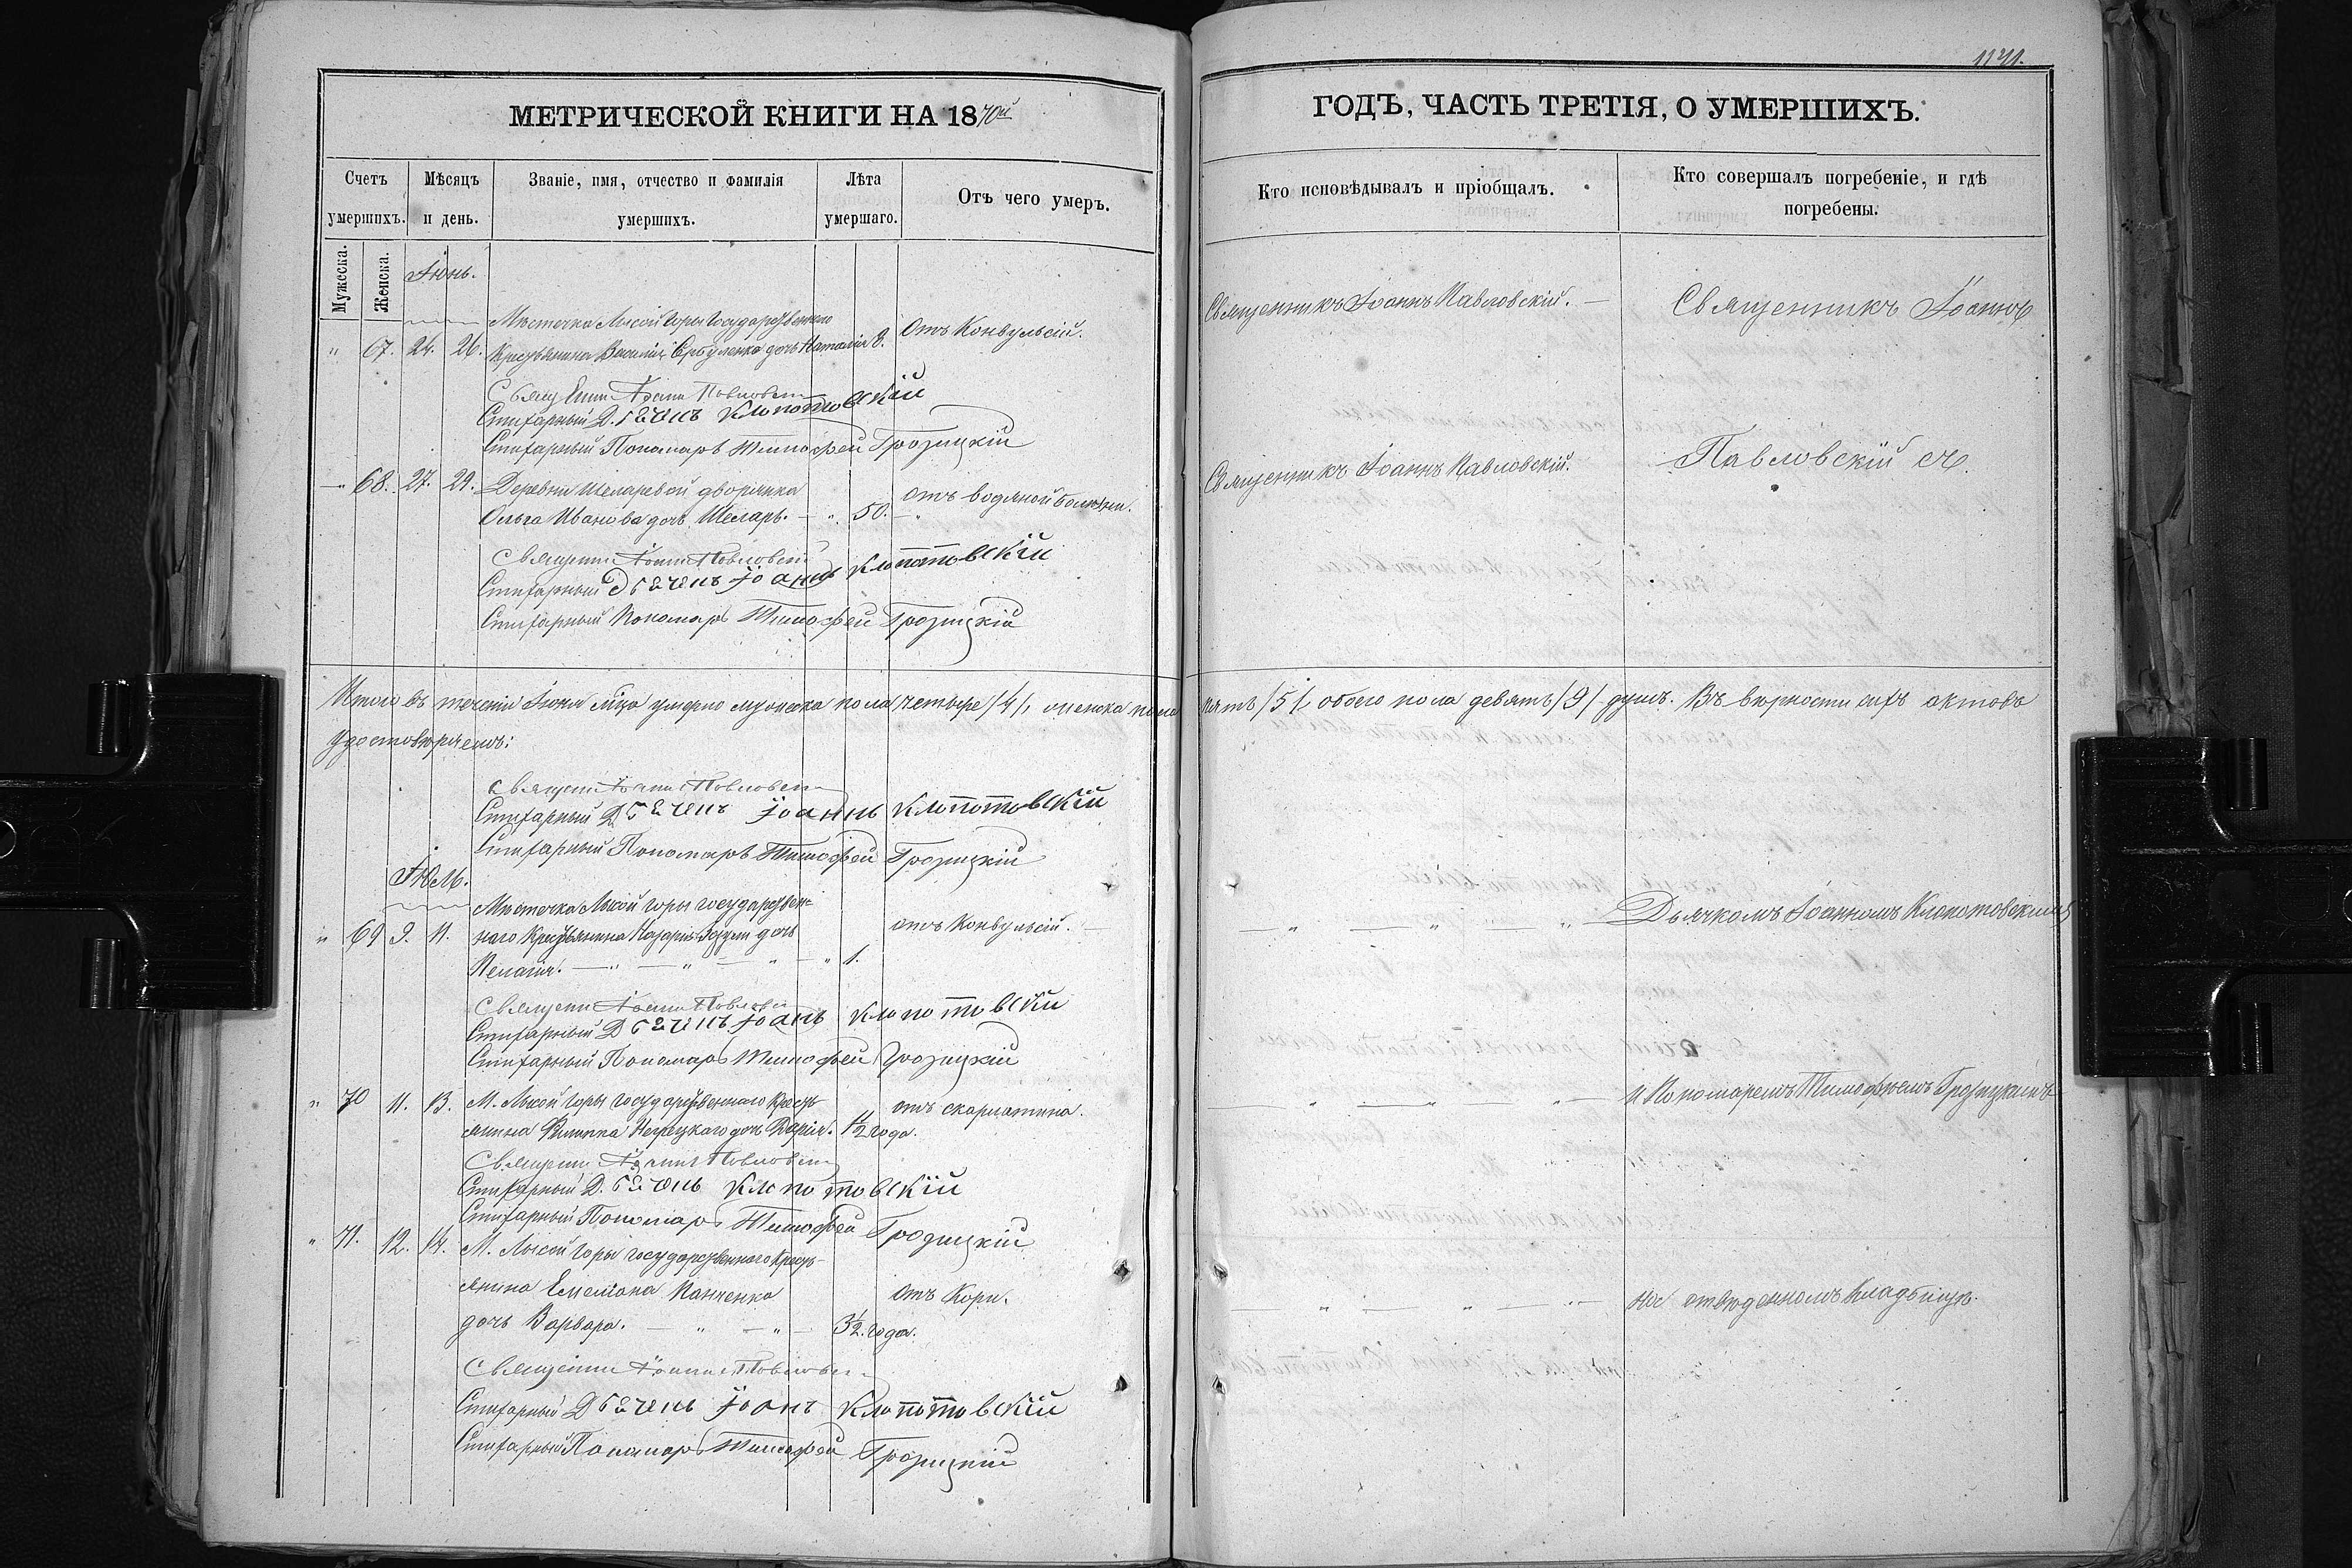 1141.
МЕТРИЧЕСКОЙ КНИГИ НА 1870й
ГОДЪ, ЧАСТЬ ТРЕТІЯ, О УМЕРШИХЪ.
Счетъ умершихъ.
Мужеска.
Женска.
Мѣсяцъ и день.
Званіе, имя, отчество и фамилія умершихъ.
Лѣта умершаго.
Отъ чего умеръ.
Кто исповѣдывалъ и пріобщалъ.
Кто совершалъ погребеніе, и гдѣ погребены.
Іюнь.
Мѣстечка Лысой Горы Государственнаго
" 67. 24. 26. Крестьянина Василія дочь Наталія 8. Отъ Конвульсій.
Священникъ Іоаннъ Павловскій. — Священникъ Іоаннъ
Священникъ Іоаннъ Павловскій
Стихарный Дьячекъ Клопотовскій
Стихарный Пономарь Тимофей Грозицкій
Павловскій съ
—" 68. 27. 29. Деревни Шеларевой дворянка
Ольга Иванова дочь Шеларь. — " 50. — отъ водяной болѣзни.
Священникъ Іоаннъ Павловскій.
Священникъ Іоаннъ Павловскій
Стихарный Дьячекъ Іоаннъ Клопотовскій
Стихарный Пономарь Тимофей Грозицкій
Итого въ теченіи Іюня м̃ца умерло мужеска пола четыре /4/, женска пола пять /5/, обоего пола девять /9/ душъ. Въ вѣрности сихъ актовъ
удостовѣряемъ:
Священникъ Іоаннъ Павловскій
Стихарный Дьячекъ Іоаннъ Клопотовскій
Стихарный Пономарь Тимофей Грозицкій
Іюль.
Мѣстечка Лысой Горы государствен=
" 69 9. 11. наго Крестьянина Назарія дочь
Пелагія. — " — " — " — " 1. отъ Конвульсій. —
— " — " — " — Дьячкомъ Іоанномъ Клопотовскимъ
Священникъ Іоаннъ Павловскій
Стихарный Дьячекъ Іоаннъ Клопотовскій
Стихарный Пономарь Тимофей Грозицкій
" 70 11. 13. М. Лысой Горы государственнаго крест
янина Филиппа дочь Дарія. 1½ года. отъ скарлатина.
— " — " — " — и Пономаремъ Тимофѣемъ Грозицкимъ
Священникъ Іоаннъ Павловскій
Стихарный Дьячекъ Клопотовскій
Стихарный Пономарь Тимофей Грозицкій
" 71. 12. 14. М. Лысой Горы государственнаго крест-
янина Емеліана Панченка
дочь Варвара. — " — " — 3½ года. отъ Кори.
" — " — " — на отведенномъ кладбищѣ.
Священникъ Іоаннъ Павловскій
Стихарный Дьячекъ Іоаннъ Клопотовскій
Стихарный Пономарь Тимофей Грозицкій